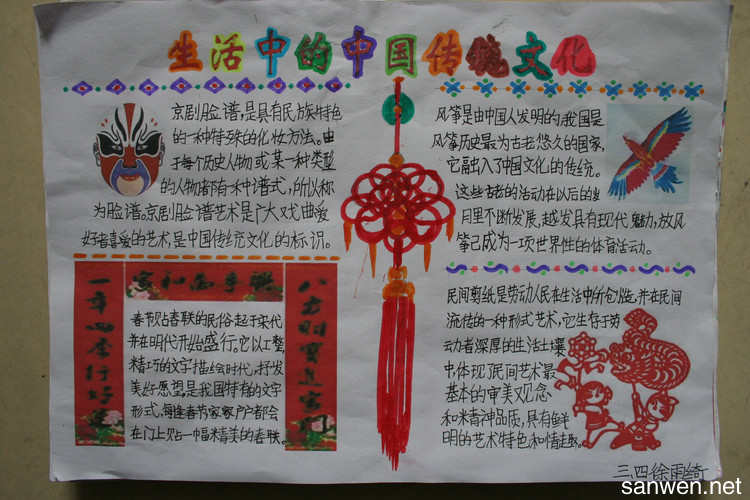 生活中的中国传统文化
京剧脸谱,是具有民族特色
的一种特殊的化妆方法。由
于每个历史人物或某一种类型
的人物都有一种谱式,所以称
为脸谱。京剧脸谱艺术是广大戏曲爱
好者喜爱的艺术,是中国传统文化的标识。
风筝是由中国人发明的,我国是
风筝历史最为古老悠久的国家,
它融入了中国文化的传统。
这些古老的活动在以后的岁
月里不断发展,越发具有现代魅力,放风
筝已成为一项世界性的体育活动。
家和万事兴
一年四季行好运
八方财宝进家门
春节贴春联的民俗起于宋代
并在明代开始盛行。它以工整,
精巧的文字描绘时代,抒发
美好愿望是我国特有的文字
形式,每逢春节家家户户都会
在门上贴一幅精美的春联。
民间剪纸是劳动人民在生活中所创造,并在民间
流传的一种形式艺术,它生存于劳
动者深厚的生活土壤
中体现了民间艺术最
基本的审美观念
和精神品质,具有鲜
明的艺术特色和情趣。
三、四徐雨绮
sanwen.net